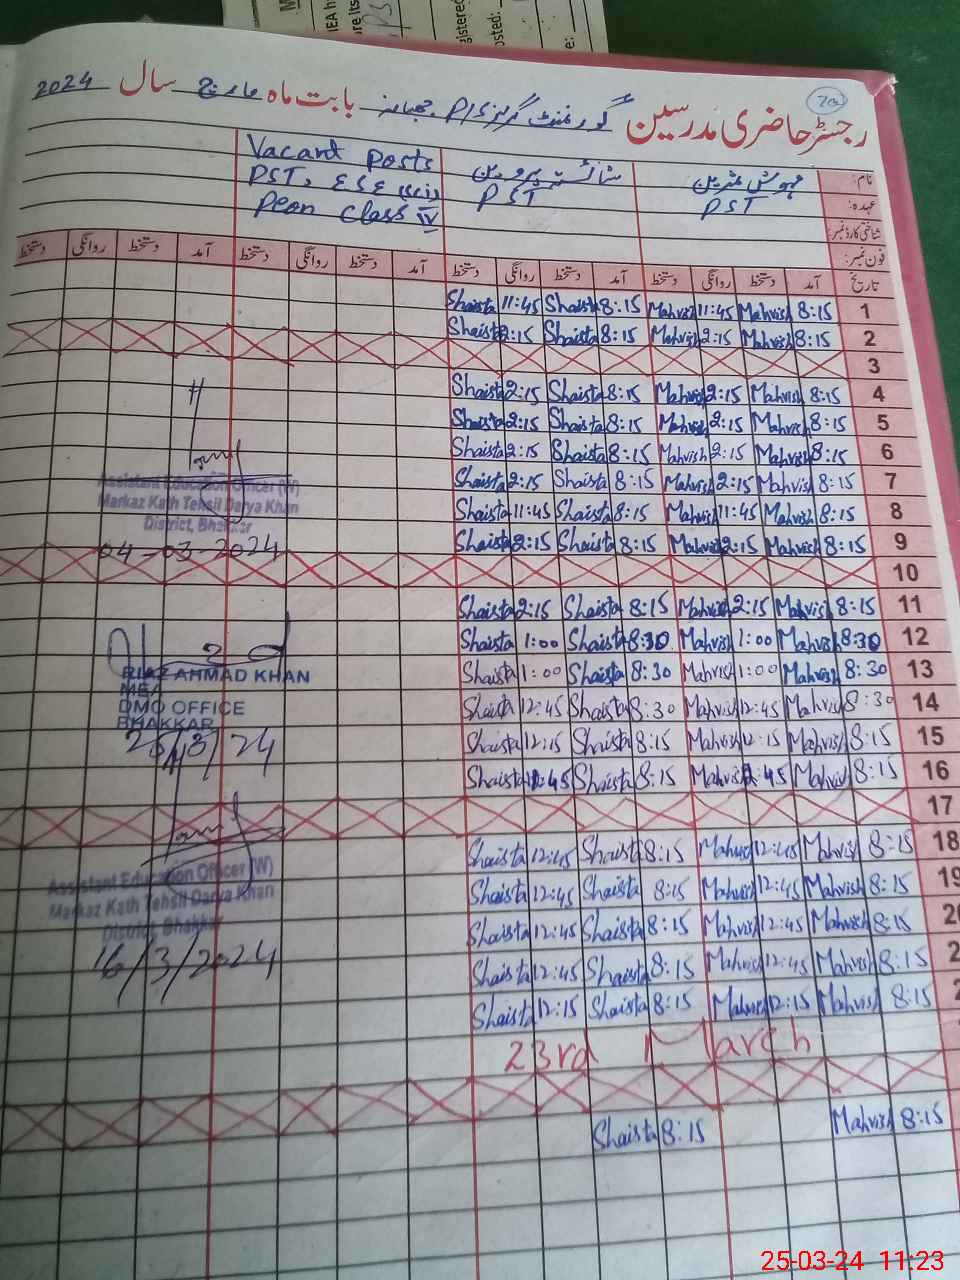 رجسٹر حاضری مدرسین گورنمنٹ گرلز P/S بابت ماہ مارچ سال 2024
20
نام: مہوش شاہستہ پروین Vacant Posts
عہدہ: PST PST PST, ESE (sci)
Peon Class IV
شناختی کارڈ نمبر:
فون نمبر:
تاریخ آمد دستخط روانگی دستخط آمد دستخط روانگی دستخط آمد دستخط روانگی دستخط آمد دستخط روانگی دستخط
Shaista 11:45 Shaista 8:15 Mahvish 11:45 Mahvish 8:15 1
Shaista 2:15 Shaista 8:15 Mahvish 2:15 Mahvish 8:15 2
3
Shaista 2:15 Shaista 8:15 Mahvish 2:15 Mahvish 8:15 4
Shaista 2:15 Shaista 8:15 Mahvish 2:15 Mahvish 8:15 5
Shaista 2:15 Shaista 8:15 Mahvish 2:15 Mahvish 8:15 6
Shaista 2:15 Shaista 8:15 Mahvish 2:15 Mahvish 8:15 7
Shaista 11:45 Shaista 8:15 Mahvish 11:45 Mahvish 8:15 8
Shaista 2:15 Shaista 8:15 Mahvish 2:15 Mahvish 8:15 9
10
Shaista 2:15 Shaista 8:15 Mahvish 2:15 Mahvish 8:15 11
Shaista 1:00 Shaista 8:30 Mahvish 1:00 Mahvish 8:30 12
Shaista 1:00 Shaista 8:30 Mahvish 1:00 Mahvish 8:30 13
Shaista 12:45 Shaista 8:30 Mahvish 12:45 Mahvish 8:30 14
Shaista 12:15 Shaista 8:15 Mahvish 12:15 Mahvish 8:15 15
Shaista 12:45 Shaista 8:15 Mahvish 12:45 Mahvish 8:15 16
17
Shaista 12:45 Shaista 8:15 Mahvish 12:45 Mahvish 8:15 18
Shaista 12:45 Shaista 8:15 Mahvish 12:45 Mahvish 8:15 19
Shaista 12:45 Shaista 8:15 Mahvish 12:45 Mahvish 8:15
Shaista 12:45 Shaista 8:15 Mahvish 12:45 Mahvish 8:15
Shaista 12:15 Shaista 8:15 Mahvish 12:15 Mahvish 8:15
23rd March
Shaista 8:15 Mahvish 8:15
Assistant Education Officer (W)
Markaz Kath Tehsil Darya Khan
District, Bhakkar
04-03-2024
RIAZ AHMAD KHAN
MEA
DMO OFFICE
BHAKKAR
Assistant Education Officer (W)
Markaz Kath Tehsil Darya Khan
District, Bhakkar
16/3/2024
25-03-24 11:23